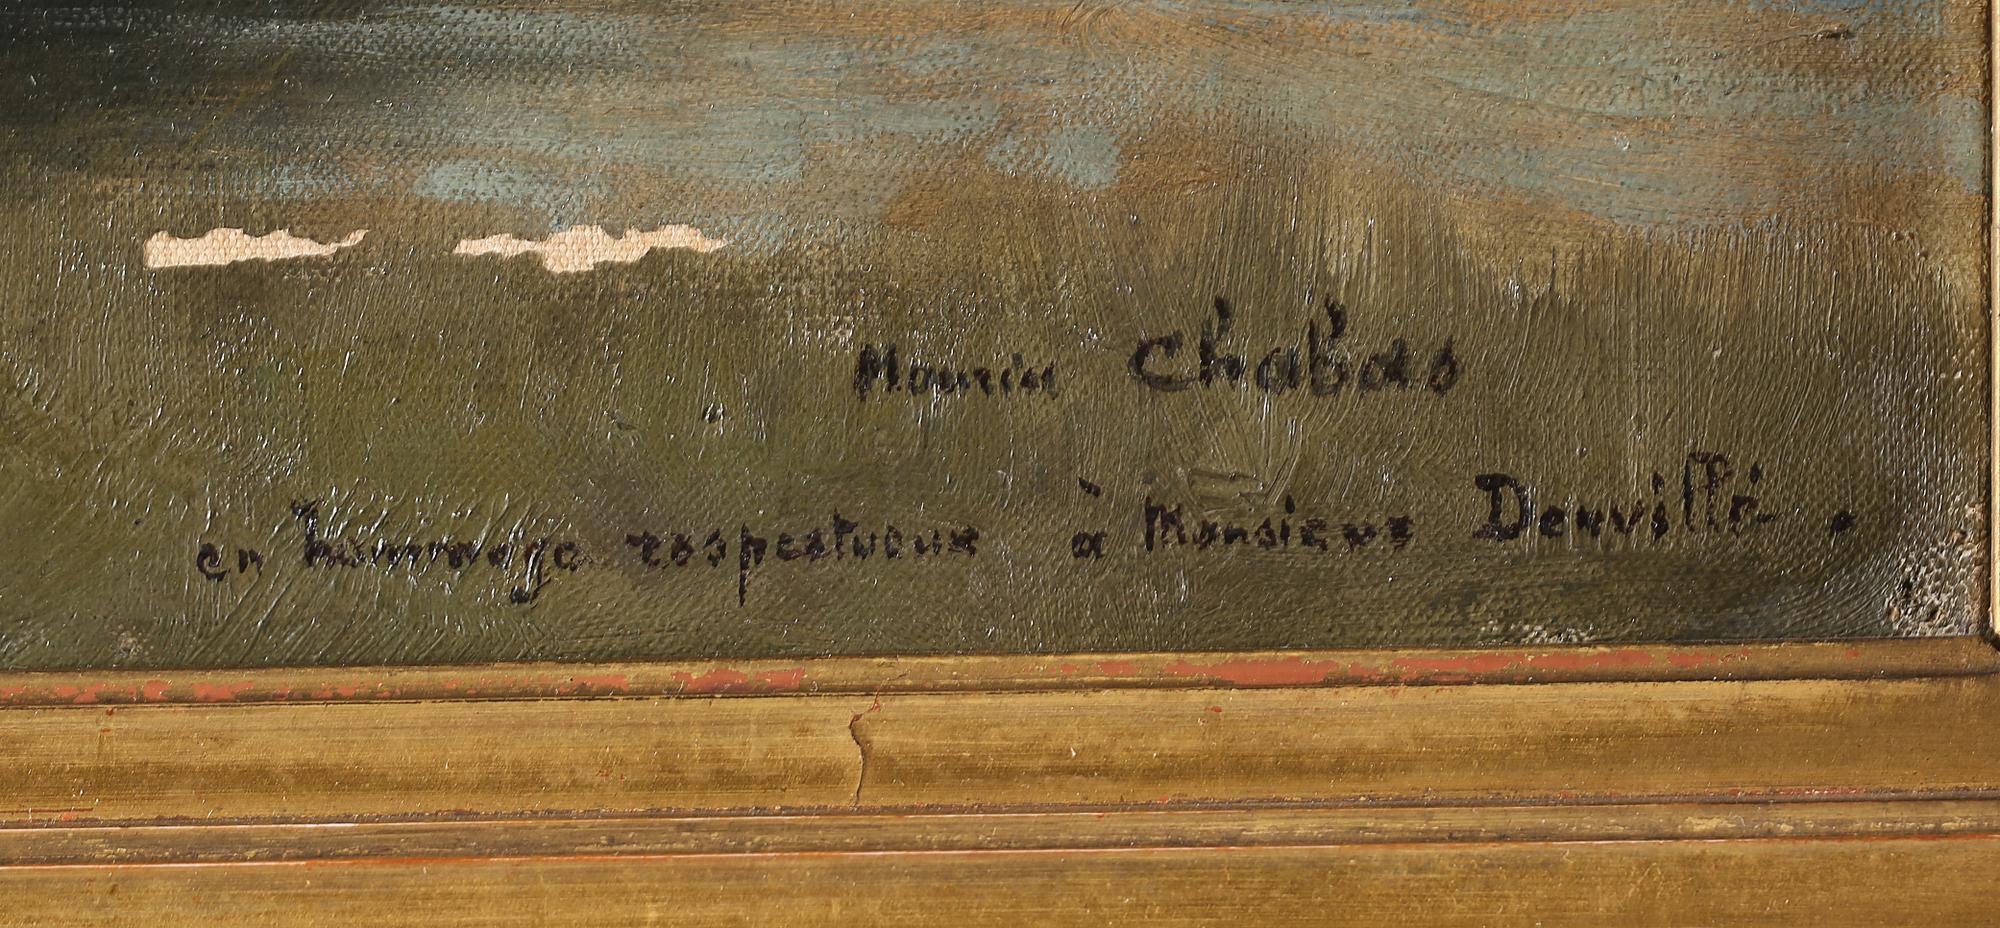 Maurice Chabas
en hommage respectueux à Monsieur Denvillé.